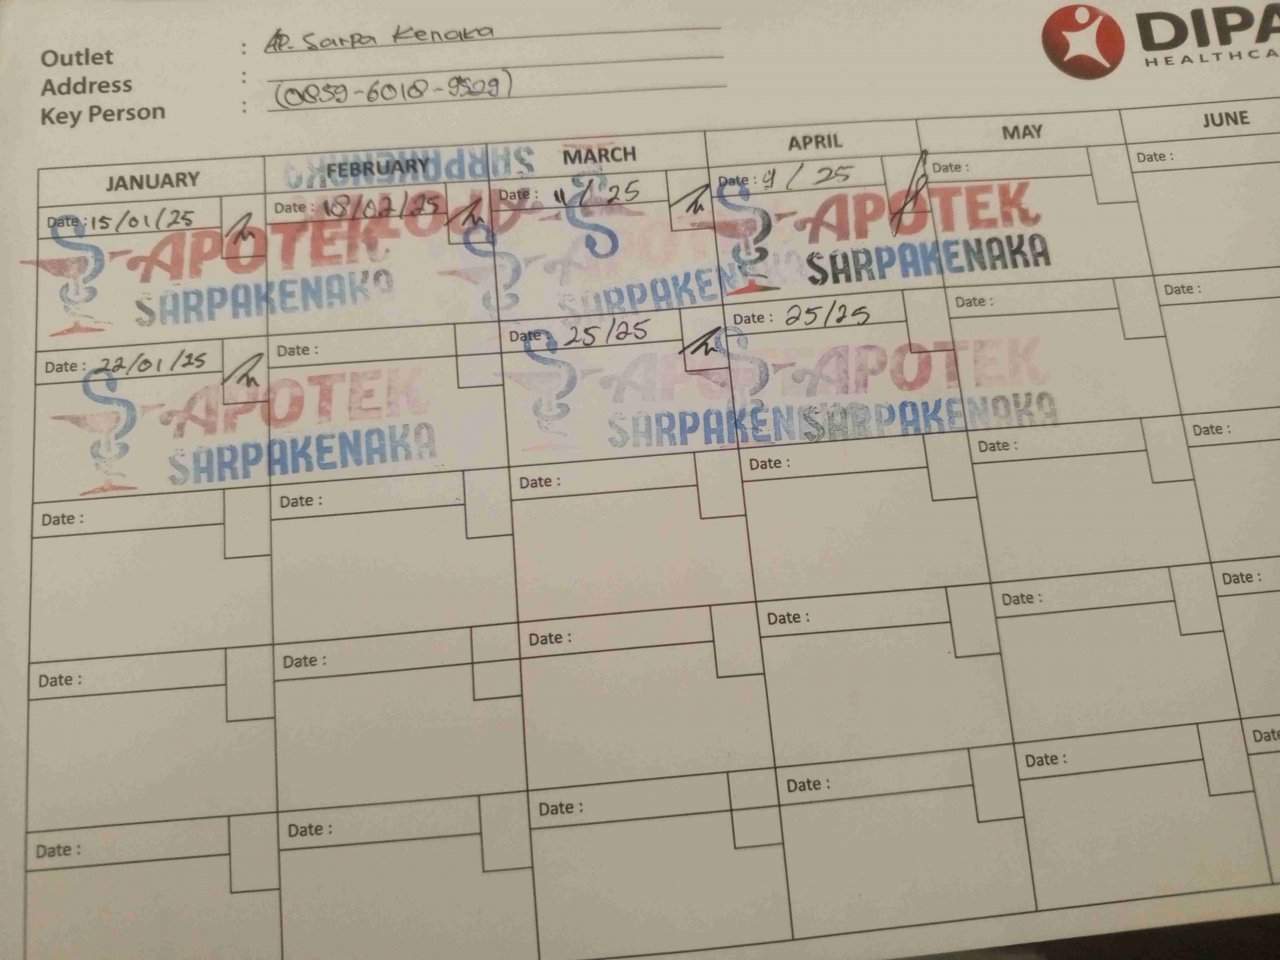 Outlet : AP. Sarpa Kenaka
Address :
Key Person : (0859-6018-9509)
DIPA
HEALTHCA
JANUARY FEBRUARY MARCH APRIL MAY JUNE
Date : 15/01/25 Date : 18/02/25 Date : 11/ /25 Date : 9 / 25 Date : Date :
APOTEK APOTEK APOTEK
SARPAKENAKA SARPAKENAKA SARPAKEN SARPAKENAKA
Date : 22/01/25 Date : Date : 25/25 Date : 25/25 Date : Date :
APOTEK APOTEK
SARPAKENAKA SARPAKEN SARPAKENAKA
Date : Date : Date : Date : Date : Date :
Date : Date : Date : Date : Date : Date :
Date : Date : Date : Date : Date : Date